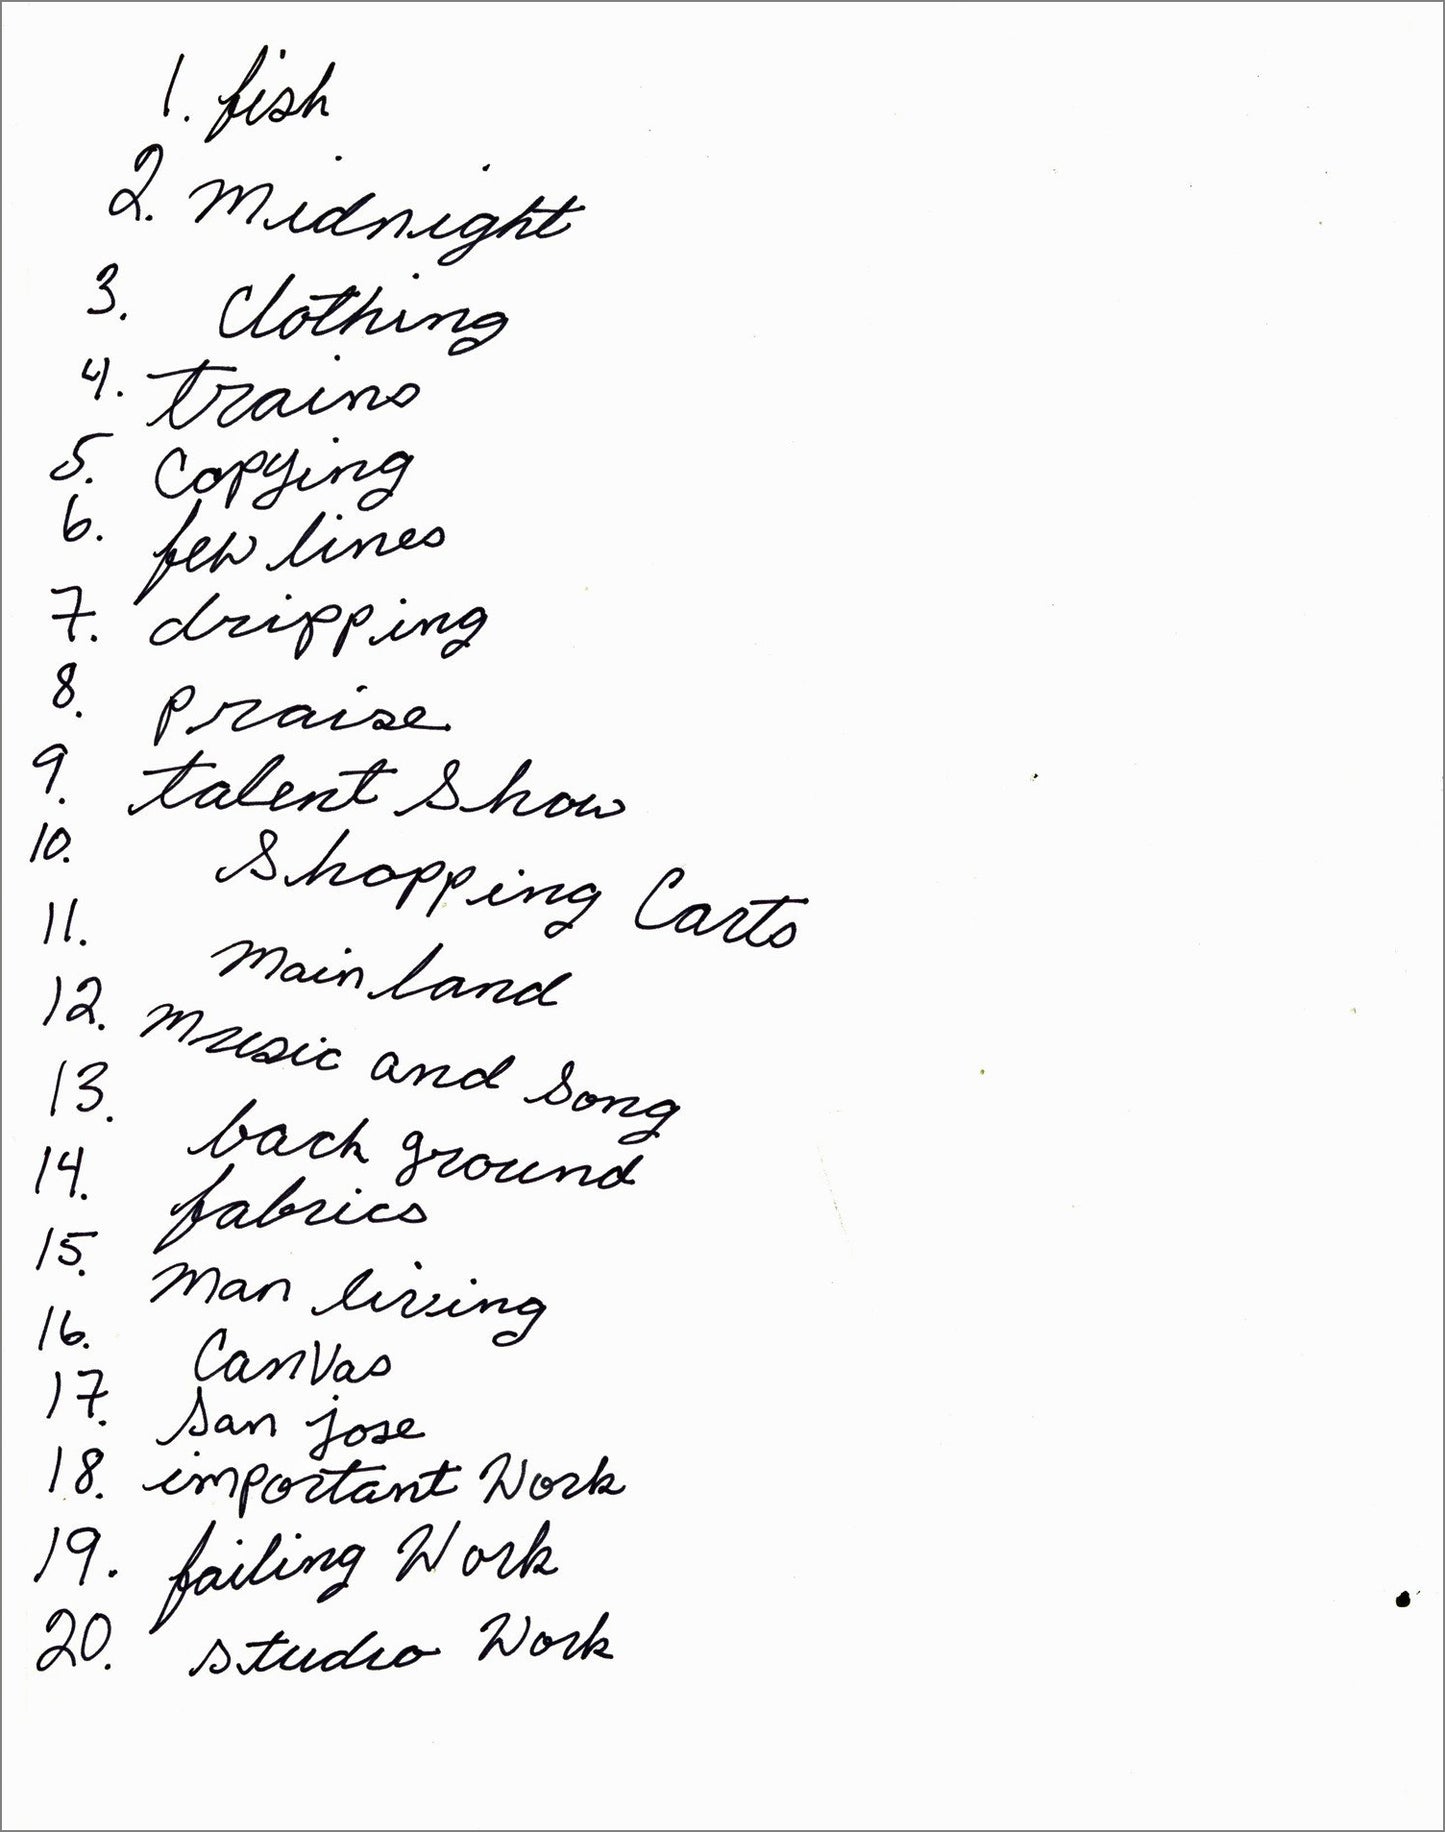 1. fish
2. Midnight
3. Clothing
4. trains
5. Copying
6. few lines
7. dripping
8. praise
9. talent Show
10. Shopping Carts
11. Main land
12. Music and Song
13. back ground
14. fabrics
15. Man living
16. Canvas
17. San jose
18. important Work
19. failing Work
20. studio Work